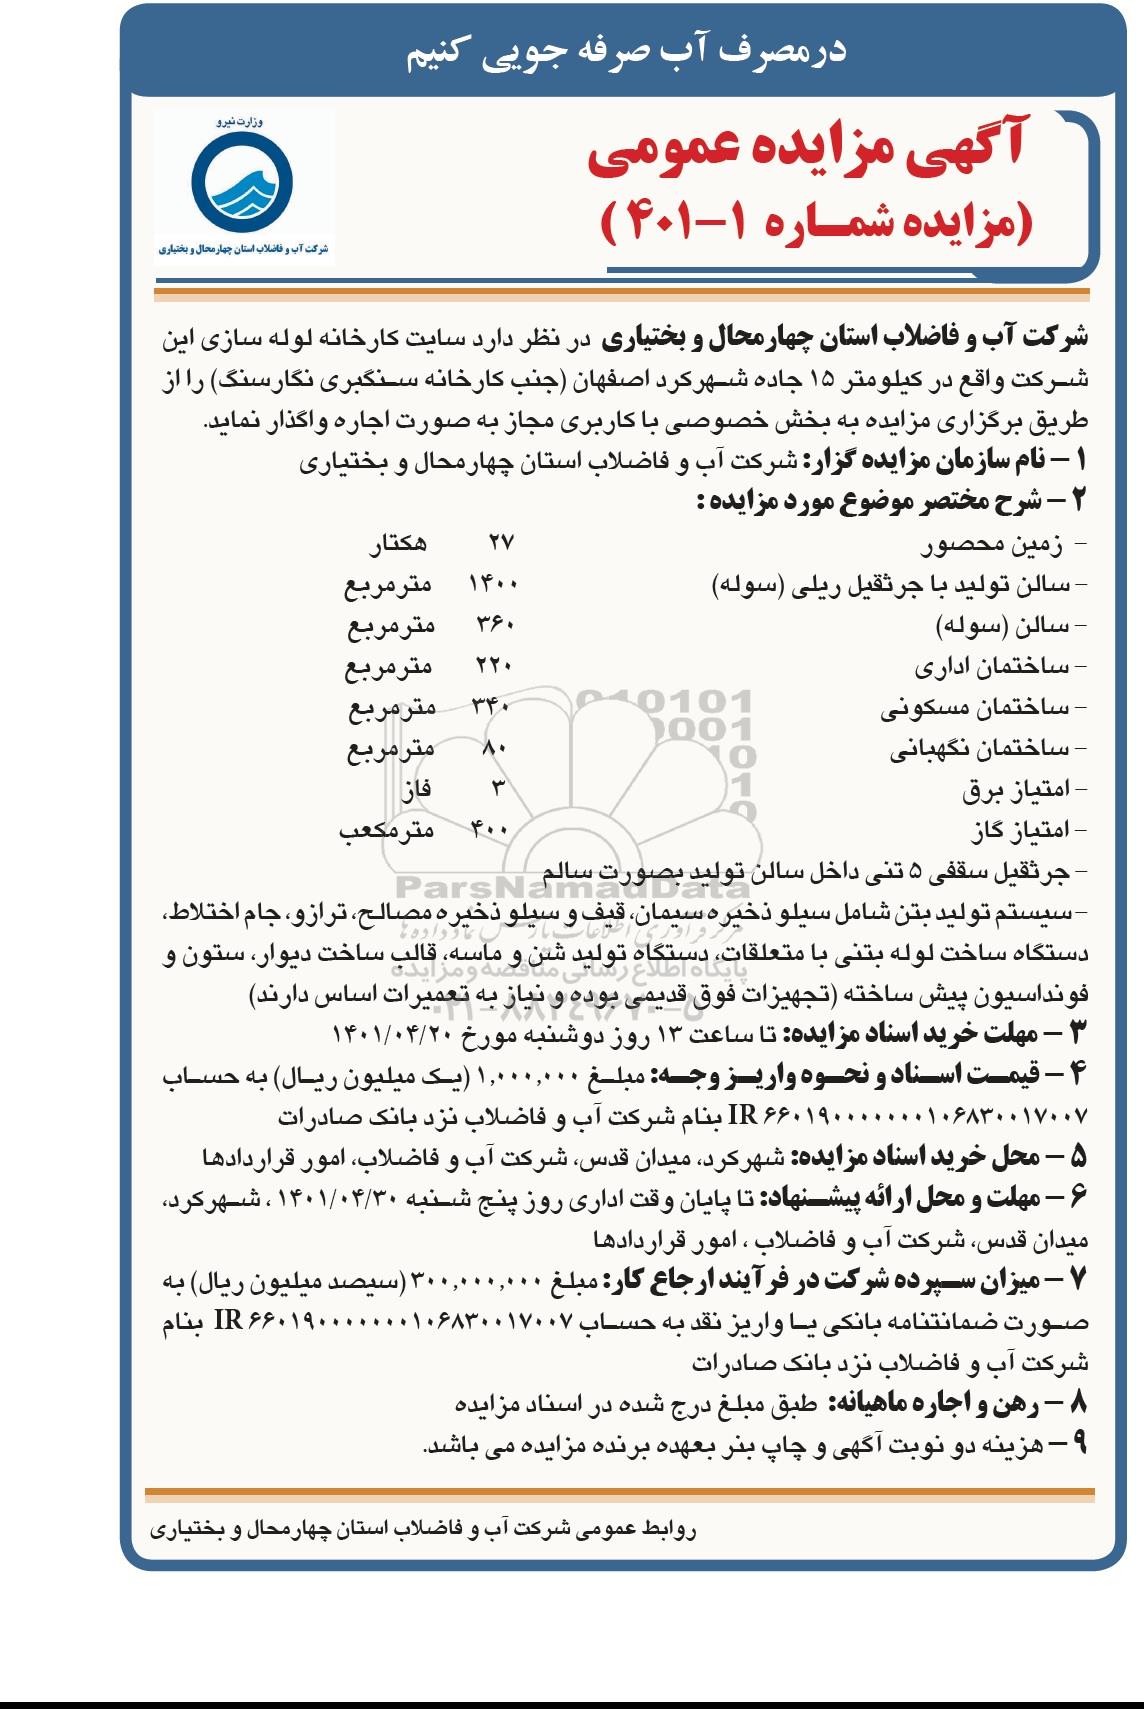 درمصرف آب صرفه جویی کنیم
وزارت نیرو
شرکت آب و فاضلاب استان چهارمحال و بختیاری
آگهی مزایده عمومی
(مزایده شماره ۱-۴۰۱)
شرکت آب و فاضلاب استان چهارمحال و بختیاری در نظر دارد سایت کارخانه لوله سازی این
شرکت واقع در کیلومتر ۱۵ جاده شهرکرد اصفهان (جنب کارخانه سنگبری نگارسنگ) را از
طریق برگزاری مزایده به بخش خصوصی با کاربری مجاز به صورت اجاره واگذار نماید.
۱ - نام سازمان مزایده گزار: شرکت آب و فاضلاب استان چهارمحال و بختیاری
۲ - شرح مختصر موضوع مورد مزایده :
- زمین محصور ۲۷ هکتار
- سالن تولید با جرثقیل ریلی (سوله) ۱۴۰۰ مترمربع
- سالن (سوله) ۳۶۰ مترمربع
- ساختمان اداری ۲۲۰ مترمربع
- ساختمان مسکونی ۳۴۰ مترمربع
- ساختمان نگهبانی ۸۰ مترمربع
- امتیاز برق ۳ فاز
- امتیاز گاز ۴۰۰ مترمکعب
- جرثقیل سقفی ۵ تنی داخل سالن تولید بصورت سالم
- سیستم تولید بتن شامل سیلو ذخیره سیمان، قیف و سیلو ذخیره مصالح، ترازو، جام اختلاط،
دستگاه ساخت لوله بتنی با متعلقات، دستگاه تولید شن و ماسه، قالب ساخت دیوار، ستون و
فونداسیون پیش ساخته (تجهیزات فوق قدیمی بوده و نیاز به تعمیرات اساس دارند)
۳ - مهلت خرید اسناد مزایده: تا ساعت ۱۳ روز دوشنبه مورخ ۱۴۰۱/۰۴/۲۰
۴ - قیمت اسناد و نحوه واریز وجه: مبلغ ۱,۰۰۰,۰۰۰ (یک میلیون ریال) به حساب
IR ۶۶۰۱۹۰۰۰۰۰۰۰۰۱۰۶۸۳۰۰۱۷۰۰۷ بنام شرکت آب و فاضلاب نزد بانک صادرات
۵ - محل خرید اسناد مزایده: شهرکرد، میدان قدس، شرکت آب و فاضلاب، امور قراردادها
۶ - مهلت و محل ارائه پیشنهاد: تا پایان وقت اداری روز پنج شنبه ۱۴۰۱/۰۴/۳۰ ، شهرکرد،
میدان قدس، شرکت آب و فاضلاب ، امور قراردادها
۷ - میزان سپرده شرکت در فرآیند ارجاع کار: مبلغ ۳۰۰,۰۰۰,۰۰۰ (سیصد میلیون ریال) به
صورت ضمانتنامه بانکی یا واریز نقد به حساب IR ۶۶۰۱۹۰۰۰۰۰۰۰۰۱۰۶۸۳۰۰۱۷۰۰۷ بنام
شرکت آب و فاضلاب نزد بانک صادرات
۸ - رهن و اجاره ماهیانه: طبق مبلغ درج شده در اسناد مزایده
۹ - هزینه دو نوبت آگهی و چاپ بنر بعهده برنده مزایده می باشد.
روابط عمومی شرکت آب و فاضلاب استان چهارمحال و بختیاری
ParsNamadData
پایگاه اطلاع رسانی مناقصه و مزایده